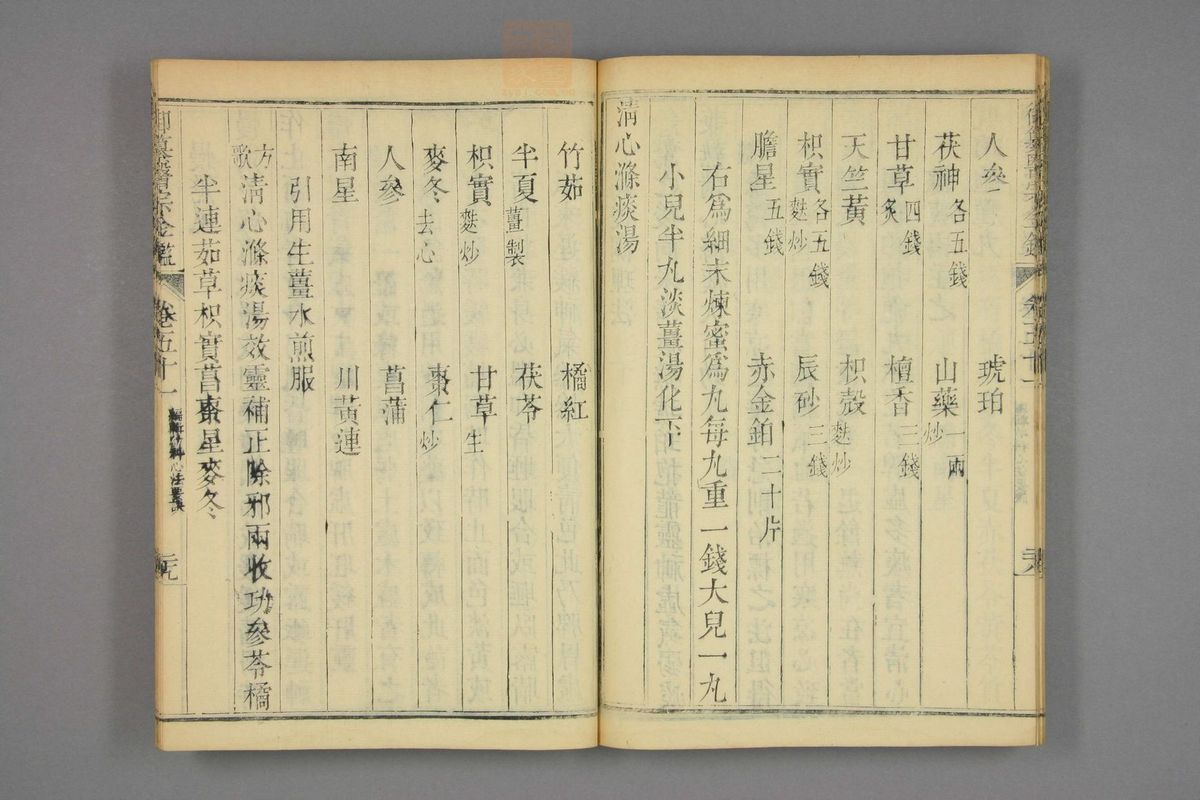 人參 琥珀
茯神各五錢 山藥一兩炒
甘草四錢炙 檀香三錢
天竺黃 枳殼麩炒
枳實各五錢麩炒 辰砂三錢
膽星五錢 赤金鉑二十片
右爲細末煉蜜爲丸每丸重一錢大兒一丸
小兒半丸淡薑湯化下
淸心滌痰湯
竹茹 橘紅
半夏薑製 茯苓
枳實麩炒 甘草生
麥冬去心 棗仁炒
人參 菖蒲
南星 川黃連
引用生薑水煎服
方歌淸心滌痰湯效靈補正除邪兩收功參苓橘
半連茹草枳實菖棗星麥冬
御纂醫宗金鑑 卷五十一 心法要訣 三九